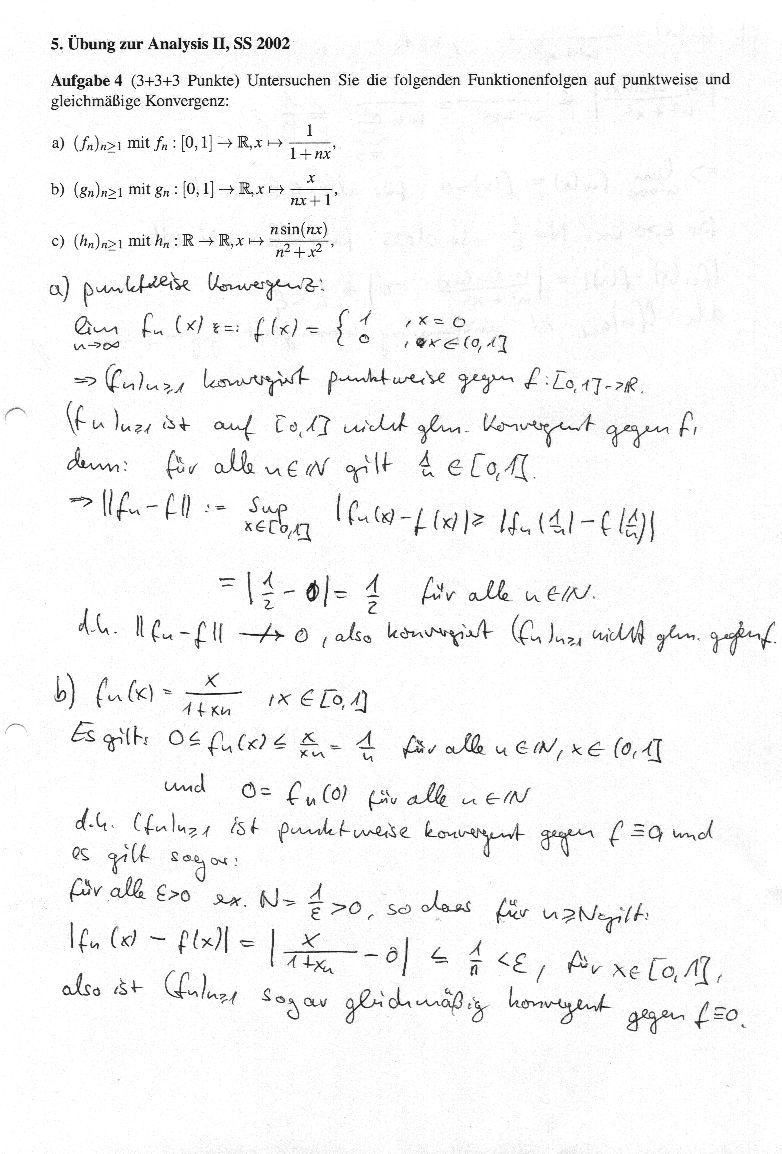 5. Übung zur Analysis II, SS 2002
Aufgabe 4 (3+3+3 Punkte) Untersuchen Sie die folgenden Funktionenfolgen auf punktweise und
gleichmäßige Konvergenz:
a) (fₙ)ₙ≥₁ mit fₙ : [0,1] → ℝ, x ↦ 1/(1+nx),
b) (gₙ)ₙ≥₁ mit gₙ : [0,1] → ℝ, x ↦ x/(nx+1),
c) (hₙ)ₙ≥₁ mit hₙ : ℝ → ℝ, x ↦ n sin(nx)/(n²+x²),
a) punktweise Konvergenz:
lim n→∞ fₙ(x) =: f(x) = { 1 , x = 0
0 , x ∈ (0,1]
⇒ (fₙ)ₙ≥₁ konvergiert punktweise gegen f : [0,1] → ℝ.
(fₙ)ₙ≥₁ ist auf [0,1] nicht glm. Konvergent gegen f,
denn: für alle n ∈ ℕ gilt 1/n ∈ [0,1].
⇒ ||fₙ - f|| := sup x∈[0,1] |fₙ(x) - f(x)| ≥ |fₙ(1/n) - f(1/n)|
= |1/2 - 0| = 1/2 für alle n ∈ ℕ.
d.h. ||fₙ - f|| ↛ 0, also konvergiert (fₙ)ₙ≥₁ nicht glm. gegen f.
b) fₙ(x) = x/(1+xn) , x ∈ [0,1]
Es gilt: 0 ≤ fₙ(x) ≤ x/(xn) = 1/n für alle n ∈ ℕ, x ∈ (0,1]
und 0 = fₙ(0) für alle n ∈ ℕ
d.h. (fₙ)ₙ≥₁ ist punktweise konvergent gegen f ≡ 0, und
es gilt sogar:
für alle ε>0 ex. N = 1/ε > 0, so dass für n ≥ N gilt:
|fₙ(x) - f(x)| = |x/(1+xn) - 0| ≤ 1/n < ε, für x ∈ [0,1],
also ist (fₙ)ₙ≥₁ sogar gleichmäßig konvergent gegen f ≡ 0.